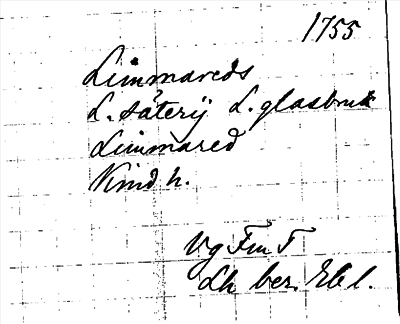 1755
Limmareds
L. säterij L. glasbruk
Limmared
Kind h.
Vg Fm T
Lh ber. Ebl.